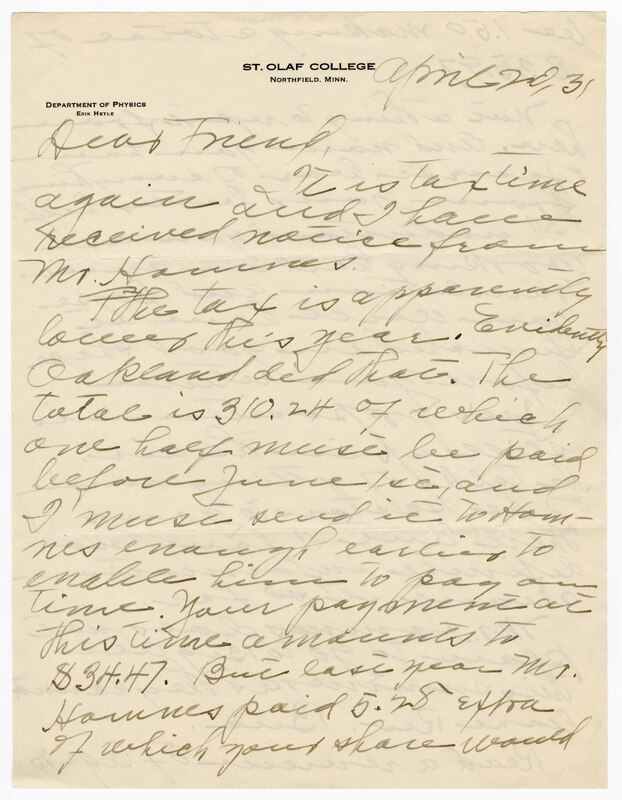 ST. OLAF COLLEGE
NORTHFIELD, MINN.
April 28, 31
DEPARTMENT OF PHYSICS
ERIK HETLE
Dear Friend,
It is tax time
again and I have
received notice from
Mr. Hommes.
The tax is apparently
lower this year. Evidently
Oakland did that. The
total is 310.24 of which
one half must be paid
before June 1st, and
I must send it to Hom-
nes enough earlier to
enable him to pay on
time. Your payment at
this time amounts to
$34.47. But last year Mr.
Homnes paid 5.28 extra
of which your share would